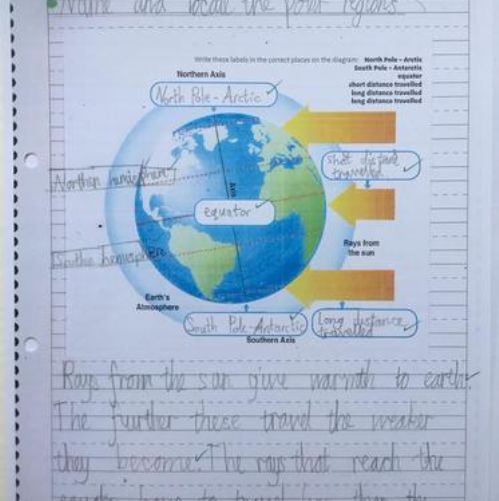 Name and locate the polar regions
Write these labels in the correct places on the diagram: North Pole - Arctic
South Pole - Antarctic
equator
short distance travelled
long distance travelled
long distance travelled
Northern Axis
North Pole - Arctic
shot distane
travelled
Northin hemisphere
Axis
equator
Rays from
the sun
Southin hemisphere
Earth's
Atmosphere
South Pole-Antarctic
Long distance
travelled
Southern Axis
Rays from the sun give warmth to earth.
The further these travel the weaker
they become. The rays that reach the
have to travel